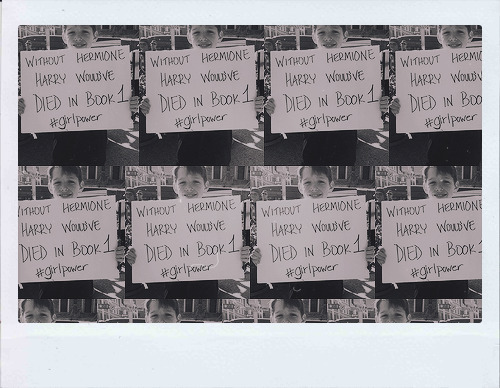 WITHOUT HERMIONE
HARRY WOULD'VE
DIED IN BOOK 1
#girlpower
WITHOUT HERMIONE
HARRY WOULD'VE
DIED IN BOOK 1
#girlpower
WITHOUT HERMIONE
HARRY WOULD'VE
DIED IN BOOK 1
#girlpower
WITHOUT HERMION
HARRY WOULD'V
DIED IN BOO
#girlpower
WITHOUT HERMIONE
HARRY WOULD'VE
DIED IN BOOK 1
#girlpower
WITHOUT HERMIONE
HARRY WOULD'VE
DIED IN BOOK 1
#girlpower
WITHOUT HERMIONE
HARRY WOULD'VE
DIED IN BOOK 1
#girlpower
WITHOUT HERMION
HARRY WOULD'VE
DIED IN BOOK
#girlpower